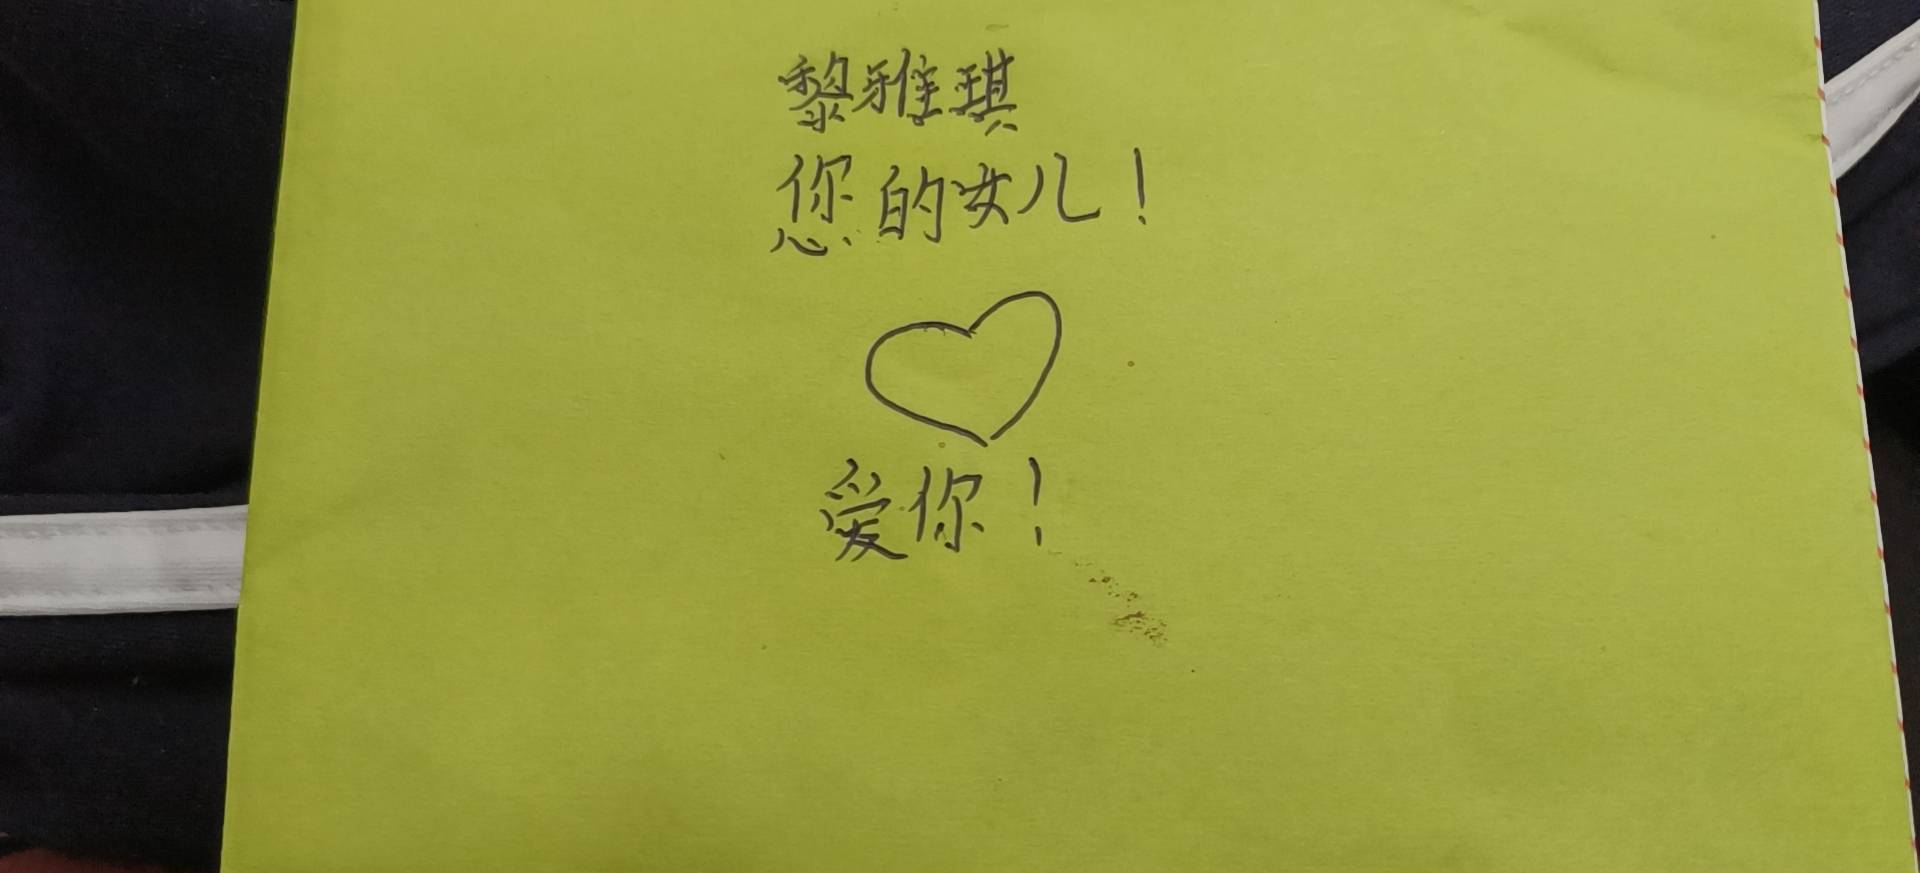 黎雅琪
您的女儿！
爱你！